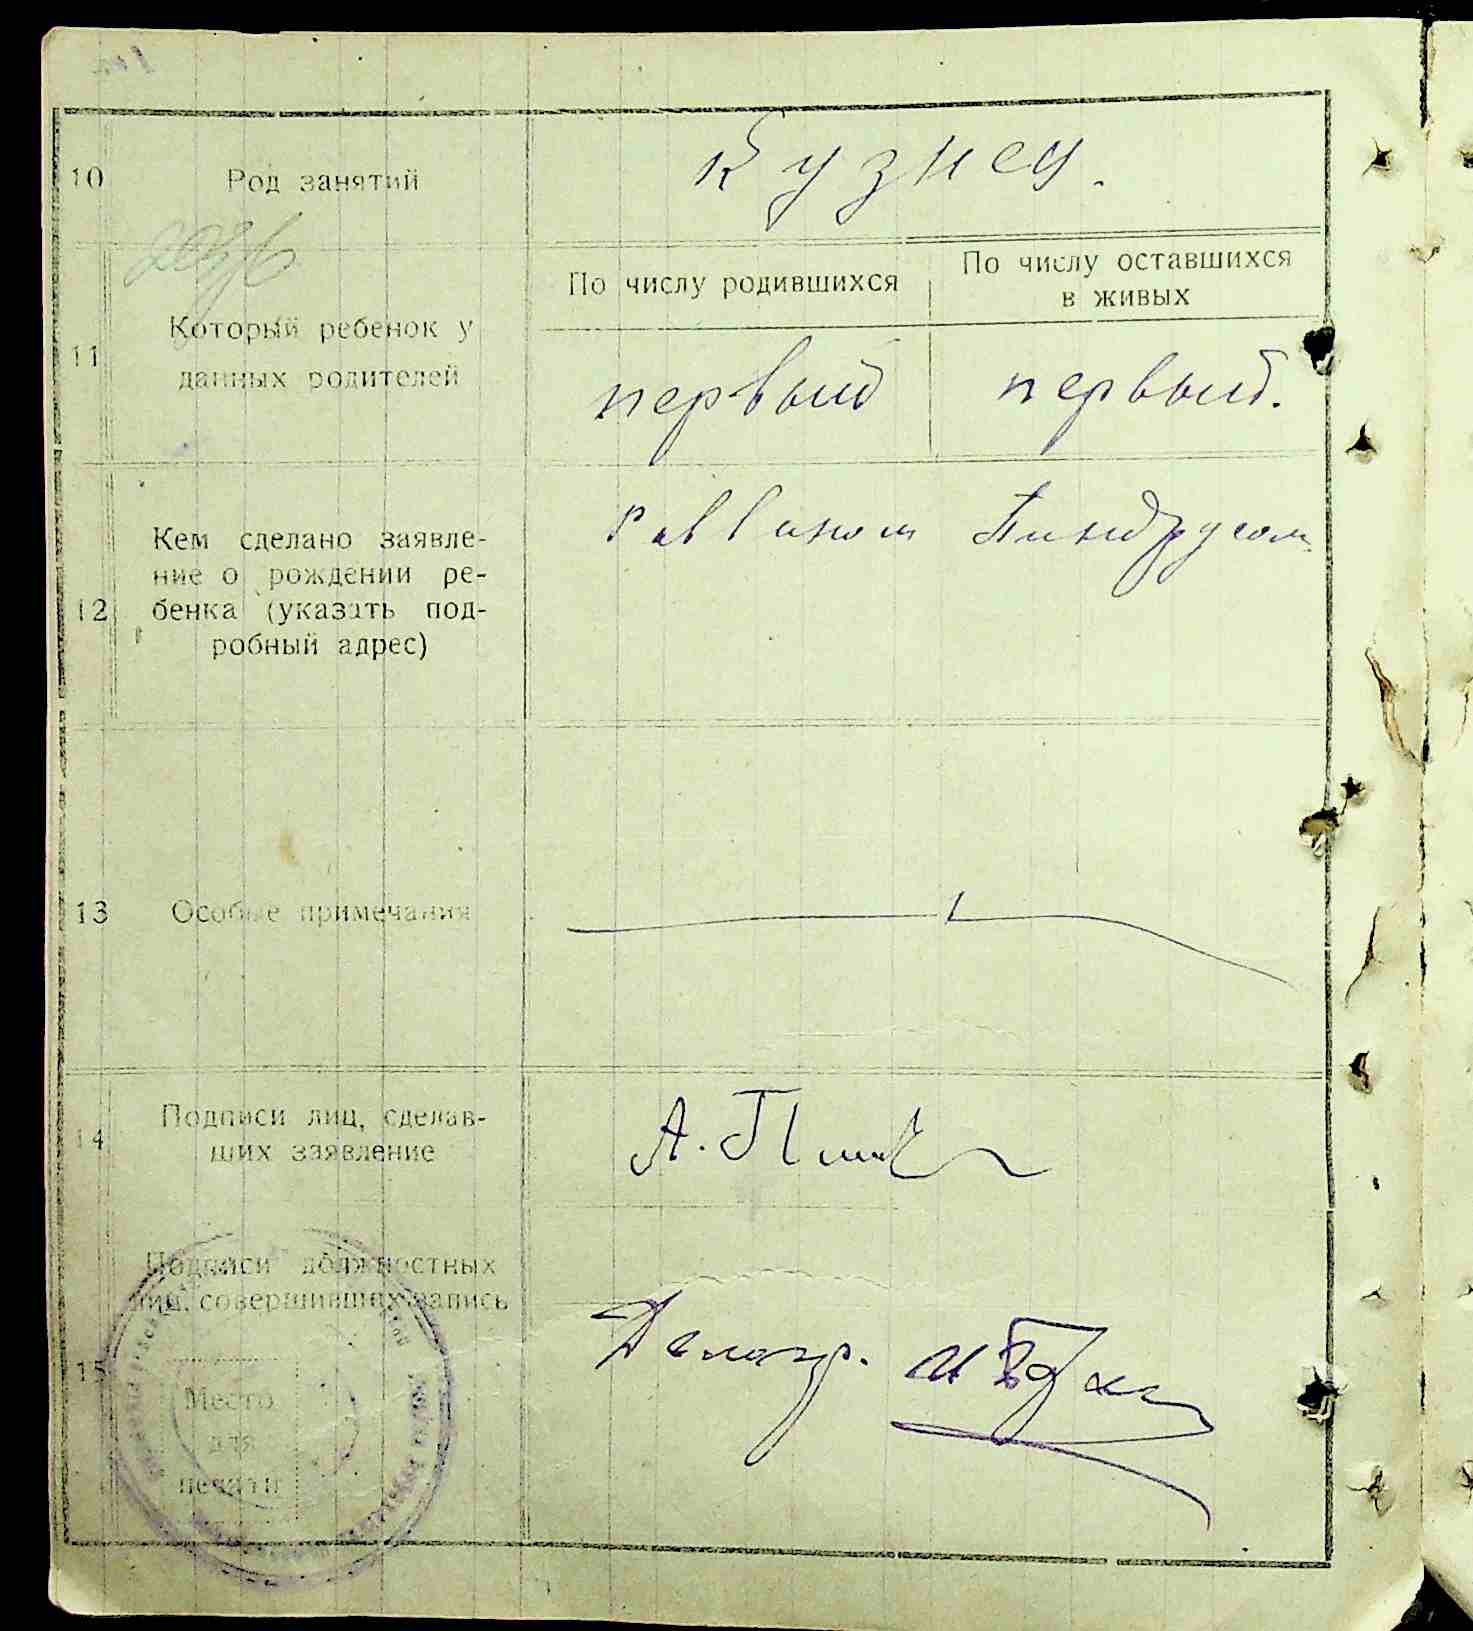 10 Род занятий
Кузнец.
11 Который ребенок у
данных родителей
По числу родившихся
По числу оставшихся
в живых
первый
первый.
12 Кем сделано заявле-
ние о рождении ре-
бенка (указать под-
робный адрес)
Раввином Пиндрусом
13 Особые примечания
14 Подписи лиц, сделав-
ших заявление
А.
15 Подписи должностных
лиц, совершивших запись
Место
для
печати